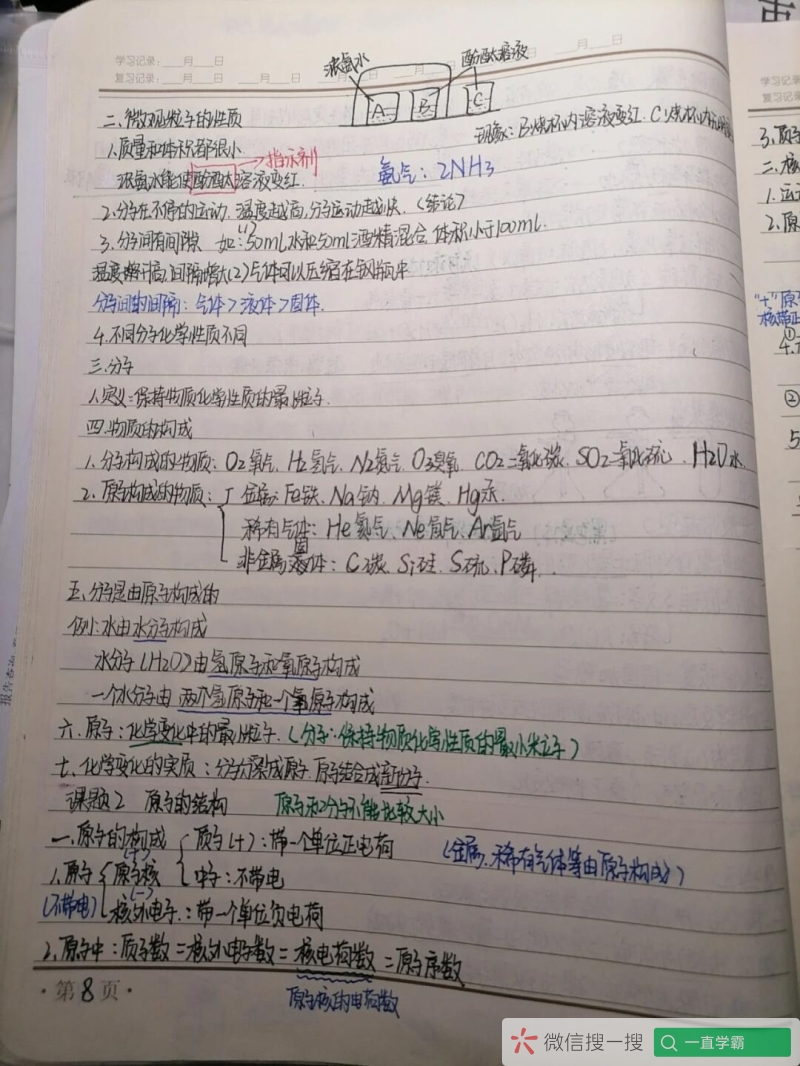 学习记录：___月___日
复习记录：___月___日 ___月___日 ___月___日
浓氨水
酚酞溶液
A B C
二、微观粒子的性质
现象：B烧杯内溶液变红.C烧杯内
1.质量和体积都很小
指示剂
浓氨水能使酚酞溶液变红.
氨气：2NH3
2.分子在不停的运动.温度越高,分子运动越快.(结论)
3.分子间有间隙 如:(1)50mL水和50mL酒精混合,体积小于100mL.
温度升高,间隔增大(2)气体可以压缩在钢瓶中
分子间的间隔：气体>液体>固体.
4.不同分子化学性质不同
三.分子
1.定义:保持物质化学性质的最小粒子.
四.物质的构成
1.分子构成的物质：O2氧气、H2氢气、N2氮气、O3臭氧、CO2二氧化碳、SO2二氧化硫、H2O水
2.原子构成的物质：金属:Fe铁、Na钠、Mg镁、Hg汞.
稀有气体：He氦气、Ne氖气、Ar氩气
非金属固体：C碳、Si硅、S硫、P磷.
五、分子是由原子构成的
例:水由水分子构成
水分子(H2O)由氢原子和氧原子构成
一个水分子由两个氢原子和一个氧原子构成
六.原子：化学变化中的最小粒子.(分子：保持物质化学性质的最小粒子)
七.化学变化的实质：分子分裂成原子 原子结合成新分子.
课题2 原子的结构 原子和分子不能比较大小
一.原子的构成 质子(+)：带一个单位正电荷
(金属、稀有气体等由原子构成)
1.原子 原子核(+) 中子:不带电
(不带电) 核外电子(-)：带一个单位负电荷
2.原子中：质子数=核外电子数=核电荷数=原子序数
原子核的电荷数
·第8页·
3.质子
二.核
1.运
2.原
"+"原
核带正
①
4.
②
5
微信搜一搜
一直学霸